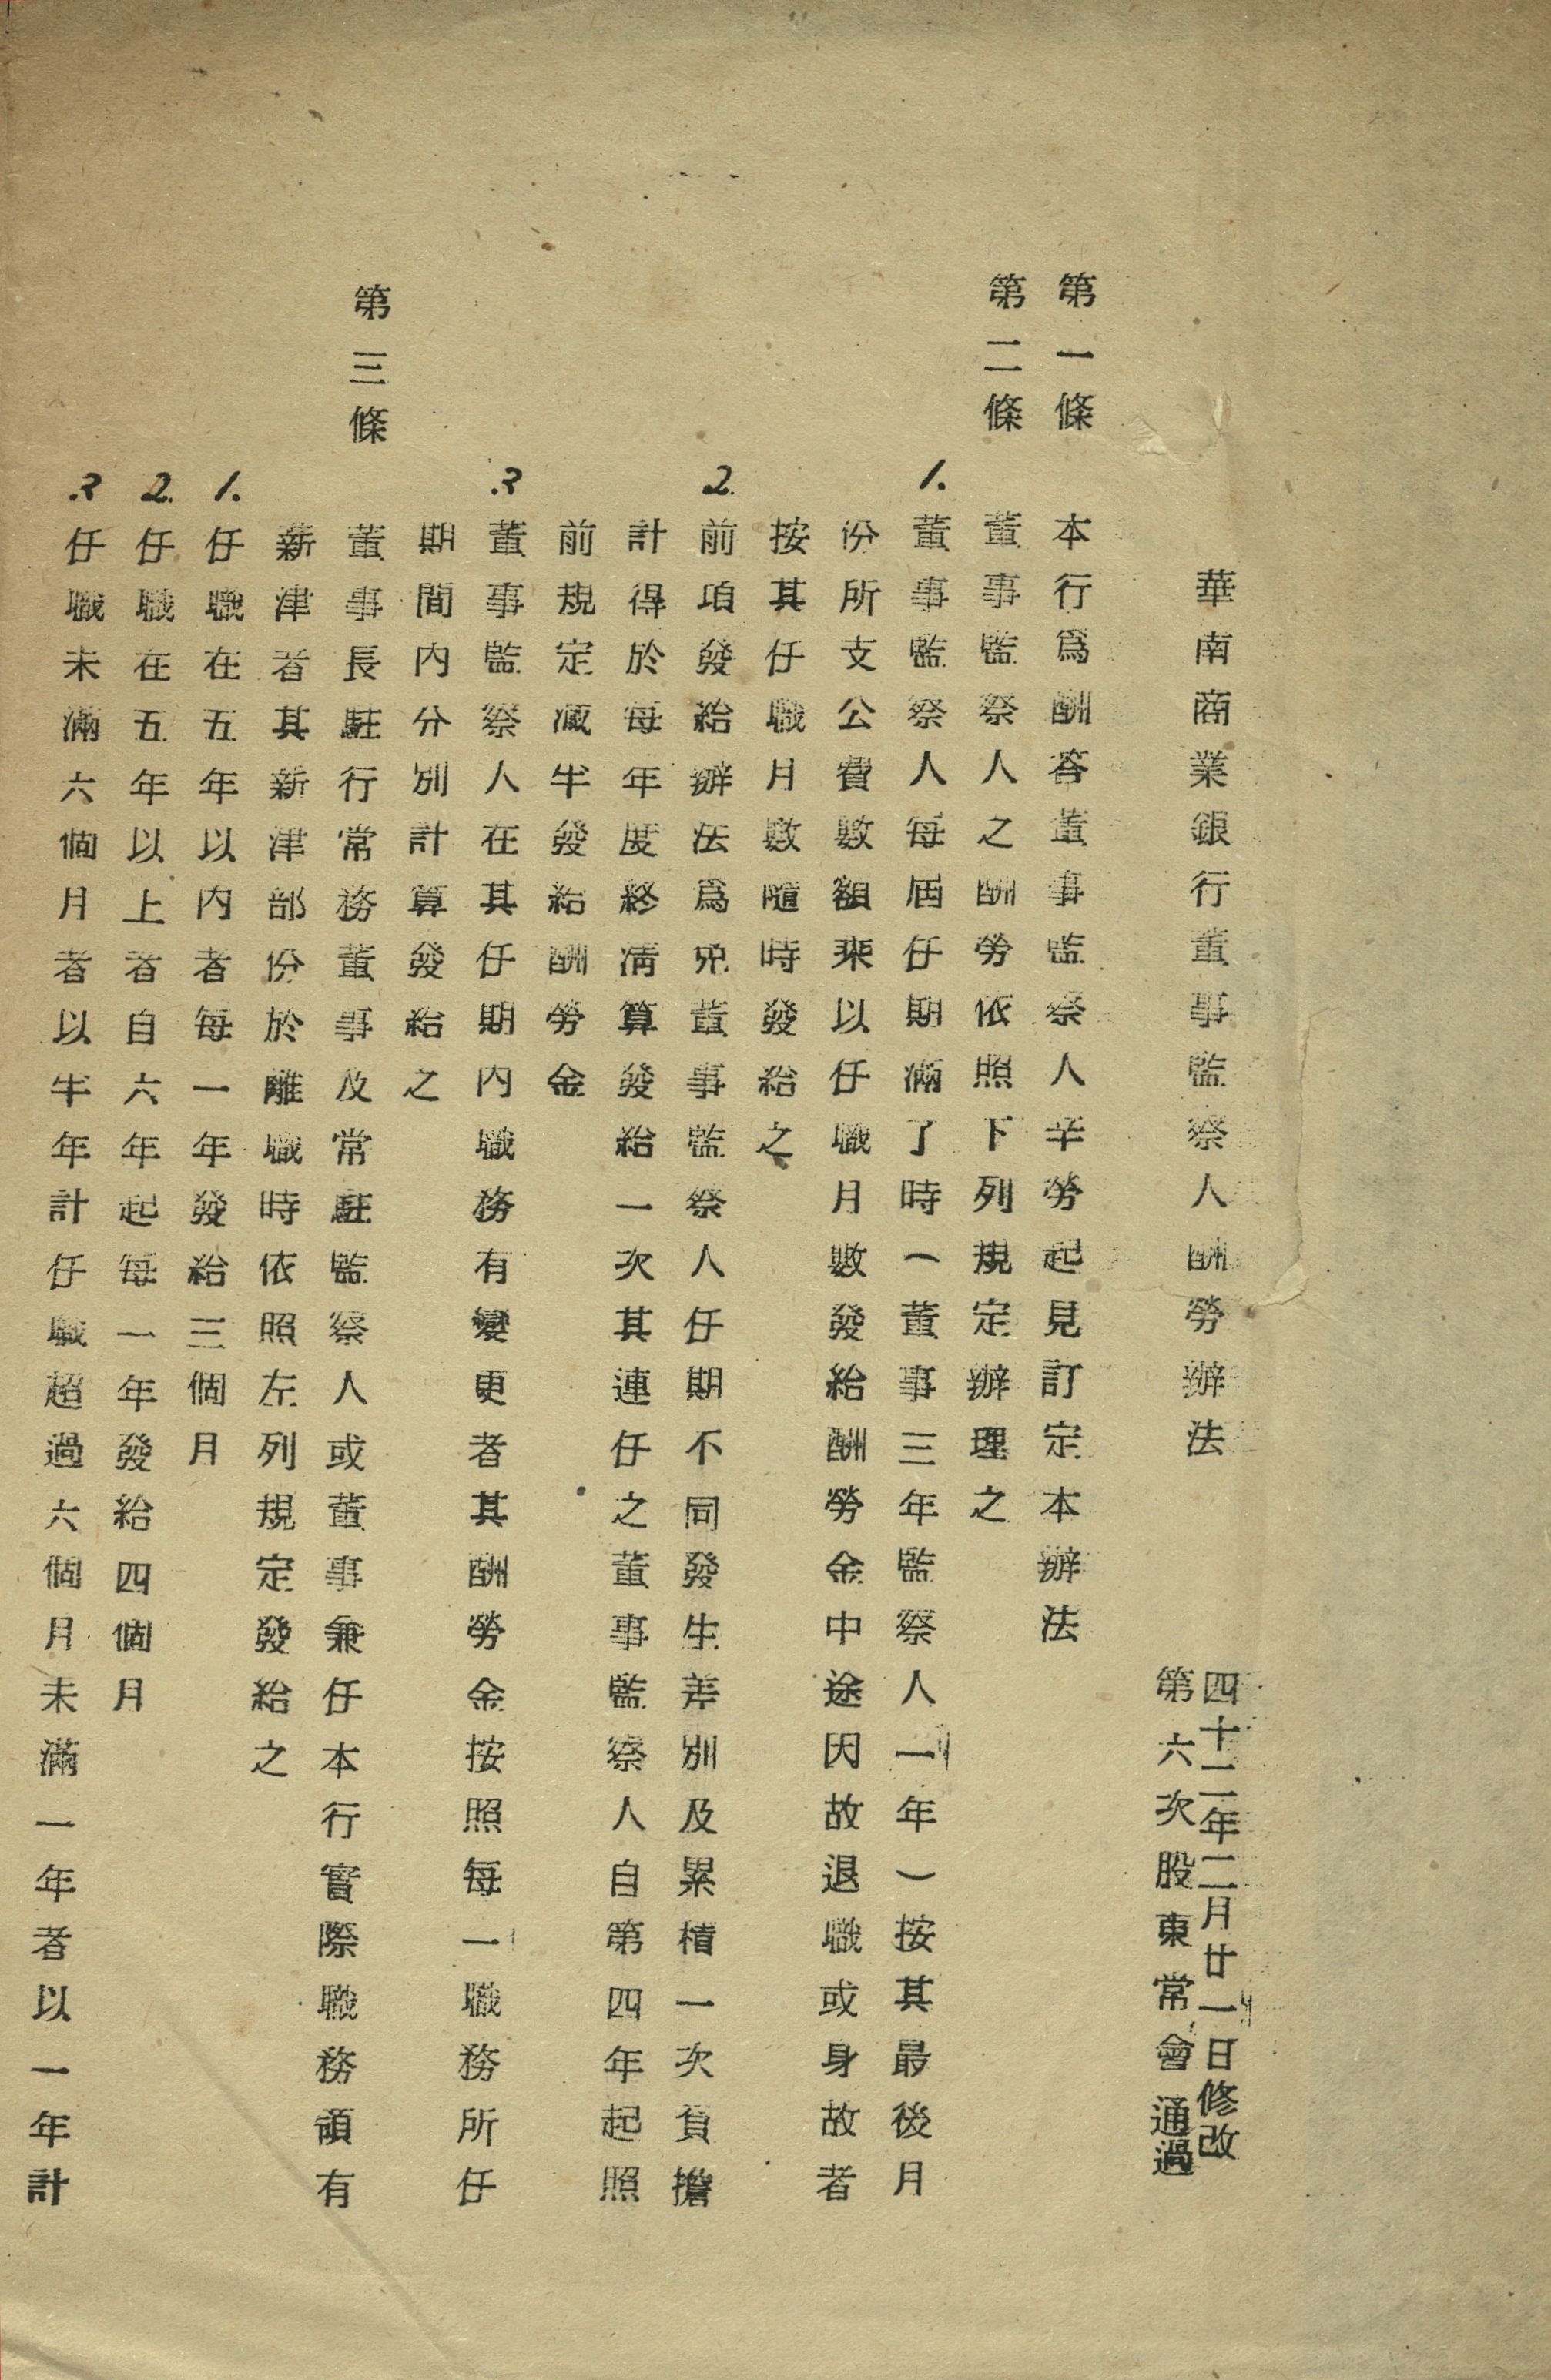 華南商業銀行董事監察人酬勞辦法
四十二年二月廿一日修改
第六次股東常會通過
第一條 本行爲酬答董事監察人辛勞起見訂定本辦法
第二條 董事監察人之酬勞依照下列規定辦理之
1. 董事監察人每屆任期滿了時（董事三年監察人一年）按其最後月
份所支公費數額乘以任職月數發給酬勞金中途因故退職或身故者
按其任職月數隨時發給之
2. 前項發給辦法爲免董事監察人任期不同發生差別及累積一次負擔
計得於每年度終淸算發給一次其連任之董事監察人自第四年起照
前規定減半發給酬勞金
3. 董事監察人在其任期內職務有變更者其酬勞金按照每一職務所任
期間內分別計算發給之
第三條 董事長駐行常務董事及常駐監察人或董事兼任本行實際職務領有
薪津者其薪津部份於離職時依照左列規定發給之
1. 任職在五年以內者每一年發給三個月
2. 任職在五年以上者自六年起每一年發給四個月
3. 任職未滿六個月者以半年計任職超過六個月未滿一年者以一年計